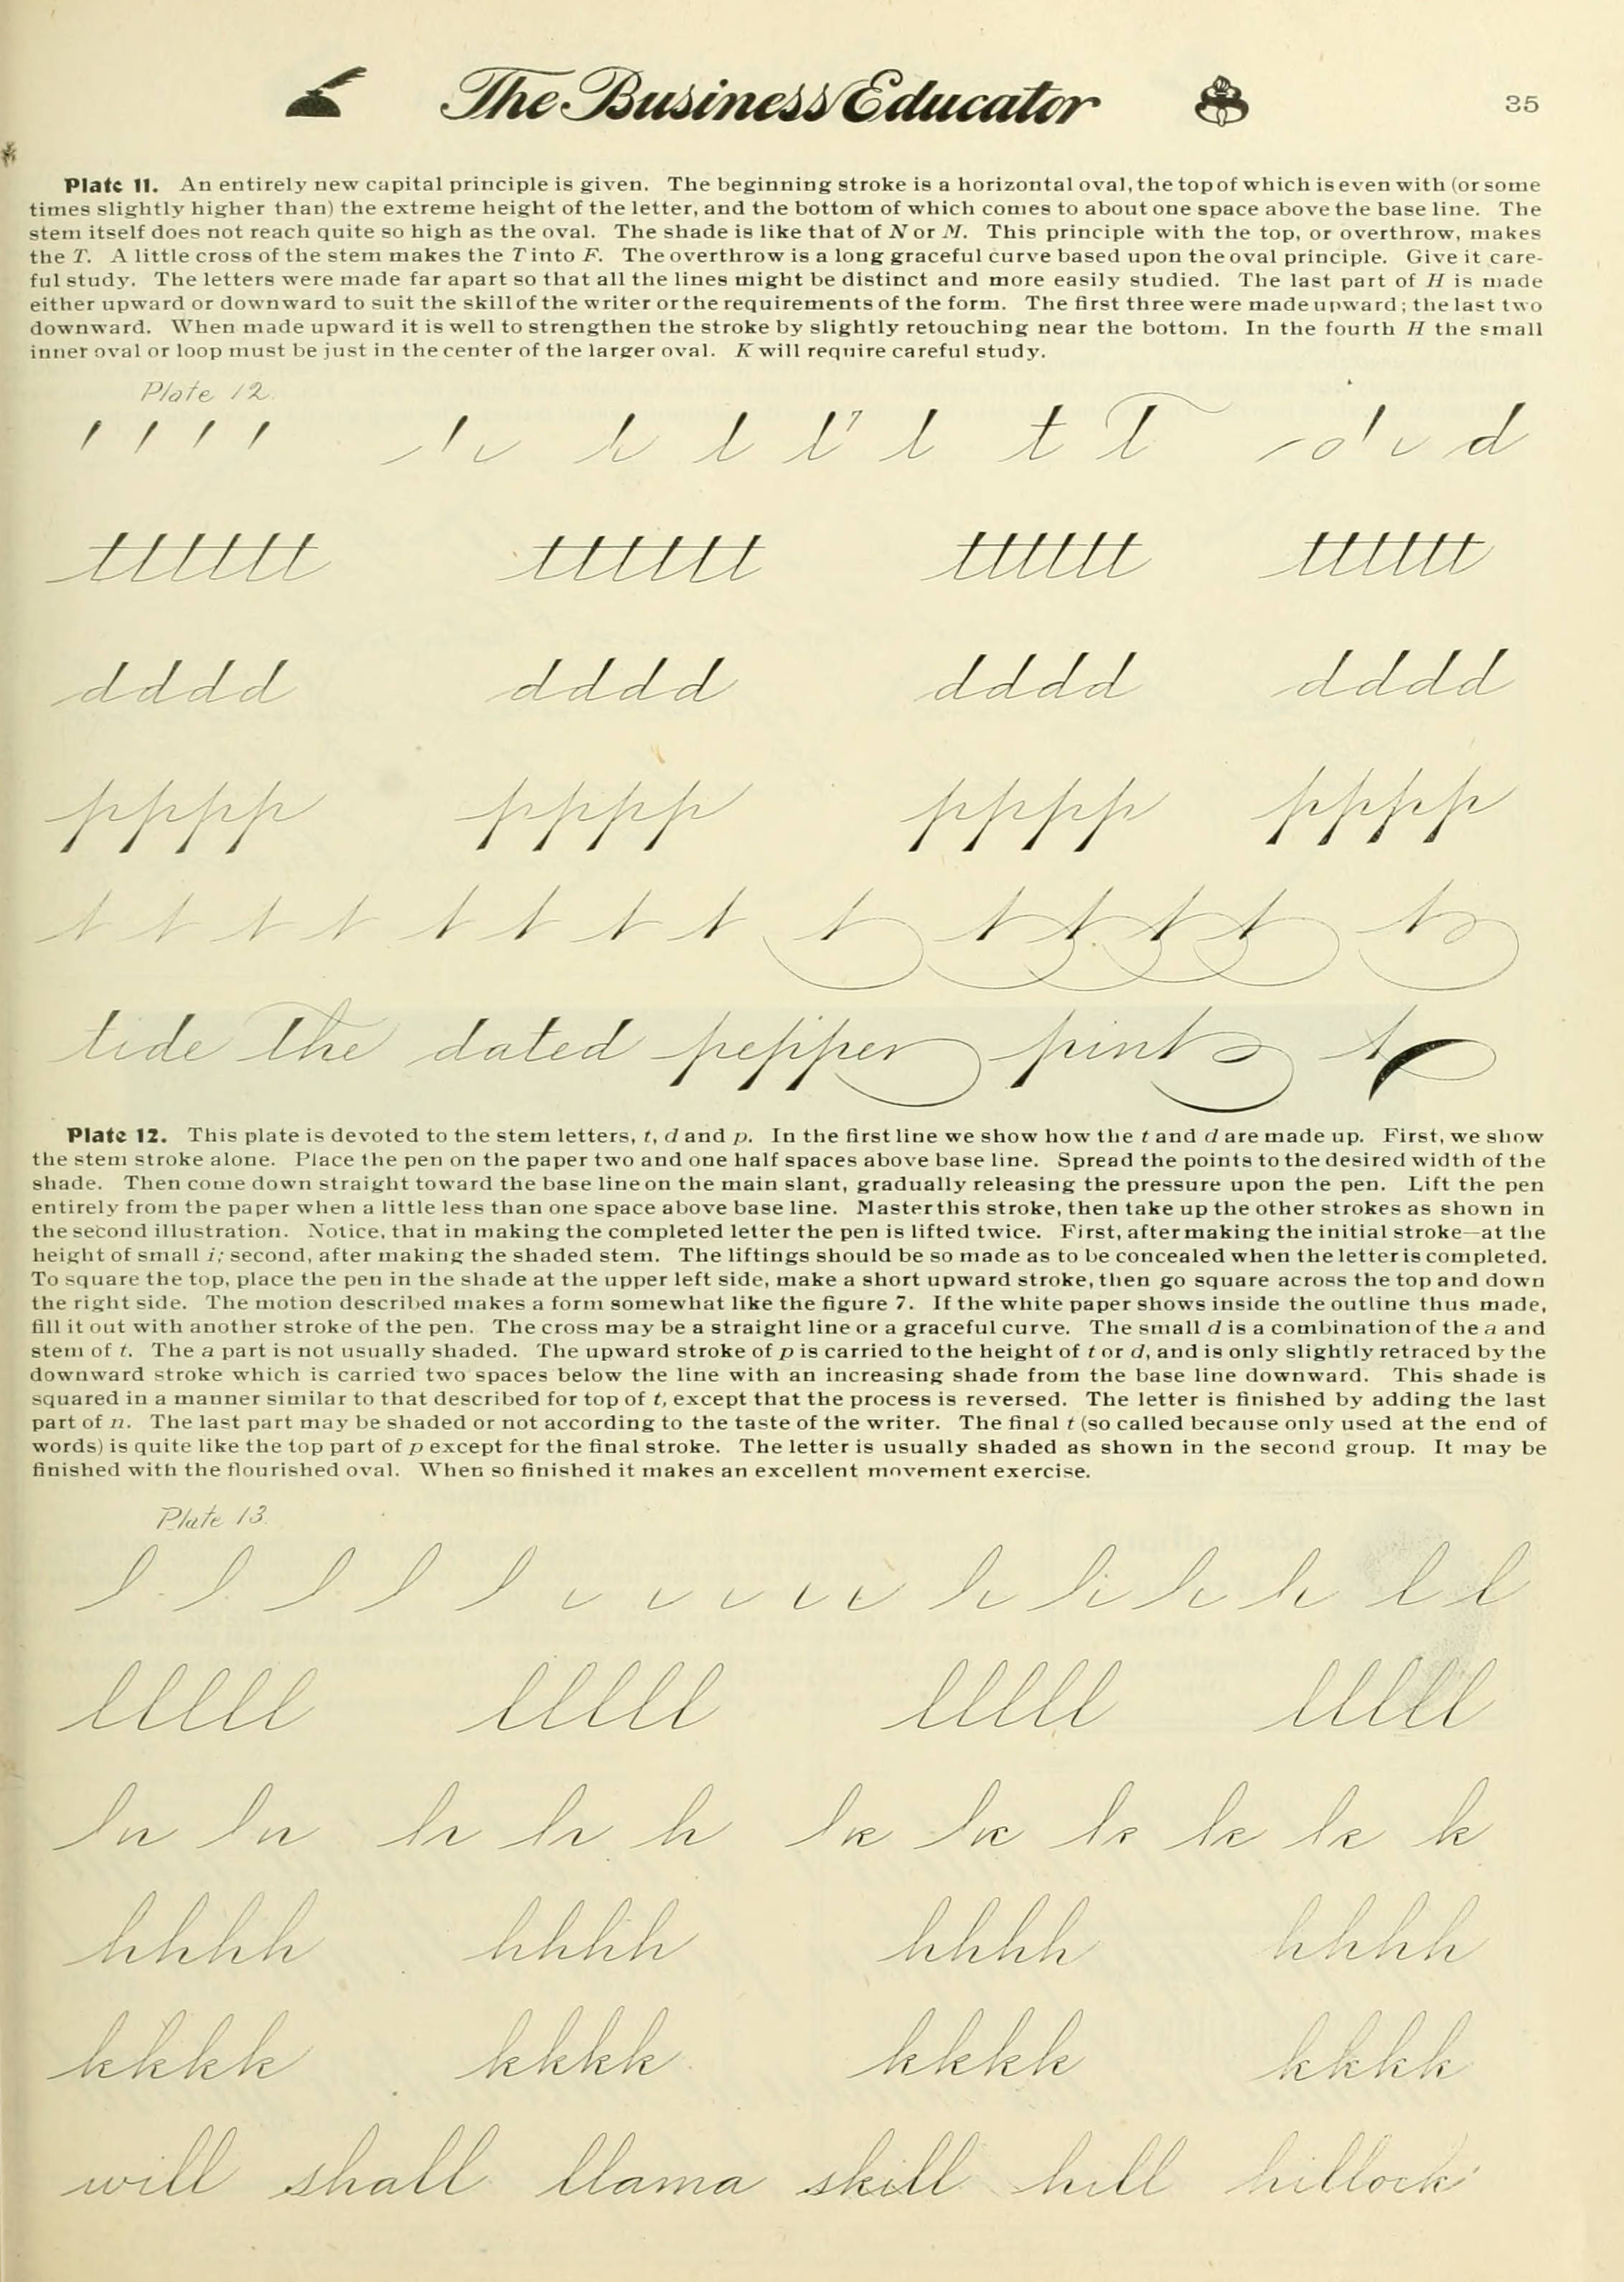 The Business Educator 35
Plate 11. An entirely new capital principle is given. The beginning stroke is a horizontal oval, the top of which is even with (or some
times slightly higher than) the extreme height of the letter, and the bottom of which comes to about one space above the base line. The
stem itself does not reach quite so high as the oval. The shade is like that of N or M. This principle with the top, or overthrow, makes
the T. A little cross of the stem makes the T into F. The overthrow is a long graceful curve based upon the oval principle. Give it care-
ful study. The letters were made far apart so that all the lines might be distinct and more easily studied. The last part of H is made
either upward or downward to suit the skill of the writer or the requirements of the form. The first three were made upward; the last two
downward. When made upward it is well to strengthen the stroke by slightly retouching near the bottom. In the fourth H the small
inner oval or loop must be just in the center of the larger oval. K will require careful study.
Plate 12.
t T d
tttttt tttttt tttttt tttttt
dddd dddd dddd dddd
pppp pppp pppp pppp
t t t t t t t t t t t t t t
tide the dated pepper pint t
Plate 12. This plate is devoted to the stem letters, t, d and p. In the first line we show how the t and d are made up. First, we show
the stem stroke alone. Place the pen on the paper two and one half spaces above base line. Spread the points to the desired width of the
shade. Then come down straight toward the base line on the main slant, gradually releasing the pressure upon the pen. Lift the pen
entirely from the paper when a little less than one space above base line. Master this stroke, then take up the other strokes as shown in
the second illustration. Notice, that in making the completed letter the pen is lifted twice. First, after making the initial stroke—at the
height of small i; second, after making the shaded stem. The liftings should be so made as to be concealed when the letter is completed.
To square the top, place the pen in the shade at the upper left side, make a short upward stroke, then go square across the top and down
the right side. The motion described makes a form somewhat like the figure 7. If the white paper shows inside the outline thus made,
fill it out with another stroke of the pen. The cross may be a straight line or a graceful curve. The small d is a combination of the a and
stem of t. The a part is not usually shaded. The upward stroke of p is carried to the height of t or d, and is only slightly retraced by the
downward stroke which is carried two spaces below the line with an increasing shade from the base line downward. This shade is
squared in a manner similar to that described for top of t, except that the process is reversed. The letter is finished by adding the last
part of n. The last part may be shaded or not according to the taste of the writer. The final t (so called because only used at the end of
words) is quite like the top part of p except for the final stroke. The letter is usually shaded as shown in the second group. It may be
finished with the flourished oval. When so finished it makes an excellent movement exercise.
Plate 13.
l l
lllll lllll lllll lllll
h k
hhhh hhhh hhhh hhhh
kkkk kkkk kkkk kkkk
will shall llama skill hill hillock